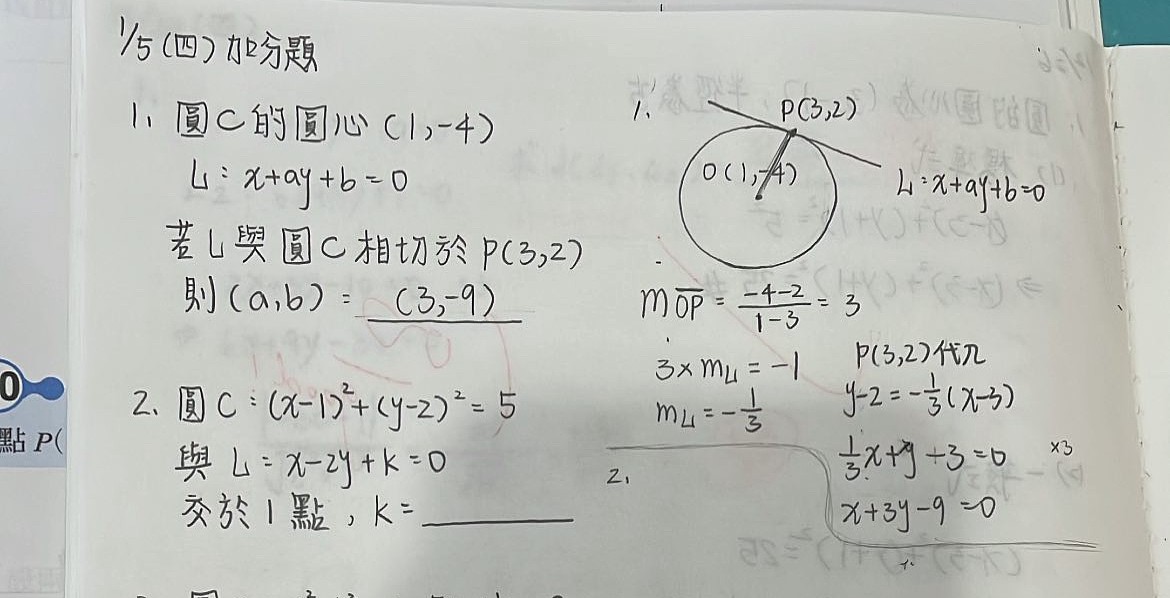 1/5 (四) 加分題
1. 圓C的圓心(1,-4)
L: x+ay+b=0
若L與圓C相切於P(3,2)
則(a,b) = (3,-9)
2. 圓C: (x-1)²+(y-2)² = 5
與 L: x-2y+k=0
交於1點, k= ______
1.
P(3,2)
O(1,-4)
L: x+ay+b=0
m OP = (-4-2)/(1-3) = 3
3×mL = -1
mL = -1/3
P(3,2)代入
y-2 = -1/3(x-3)
1/3x+y-3=0 ×3
x+3y-9=0
2.
0
點 P(